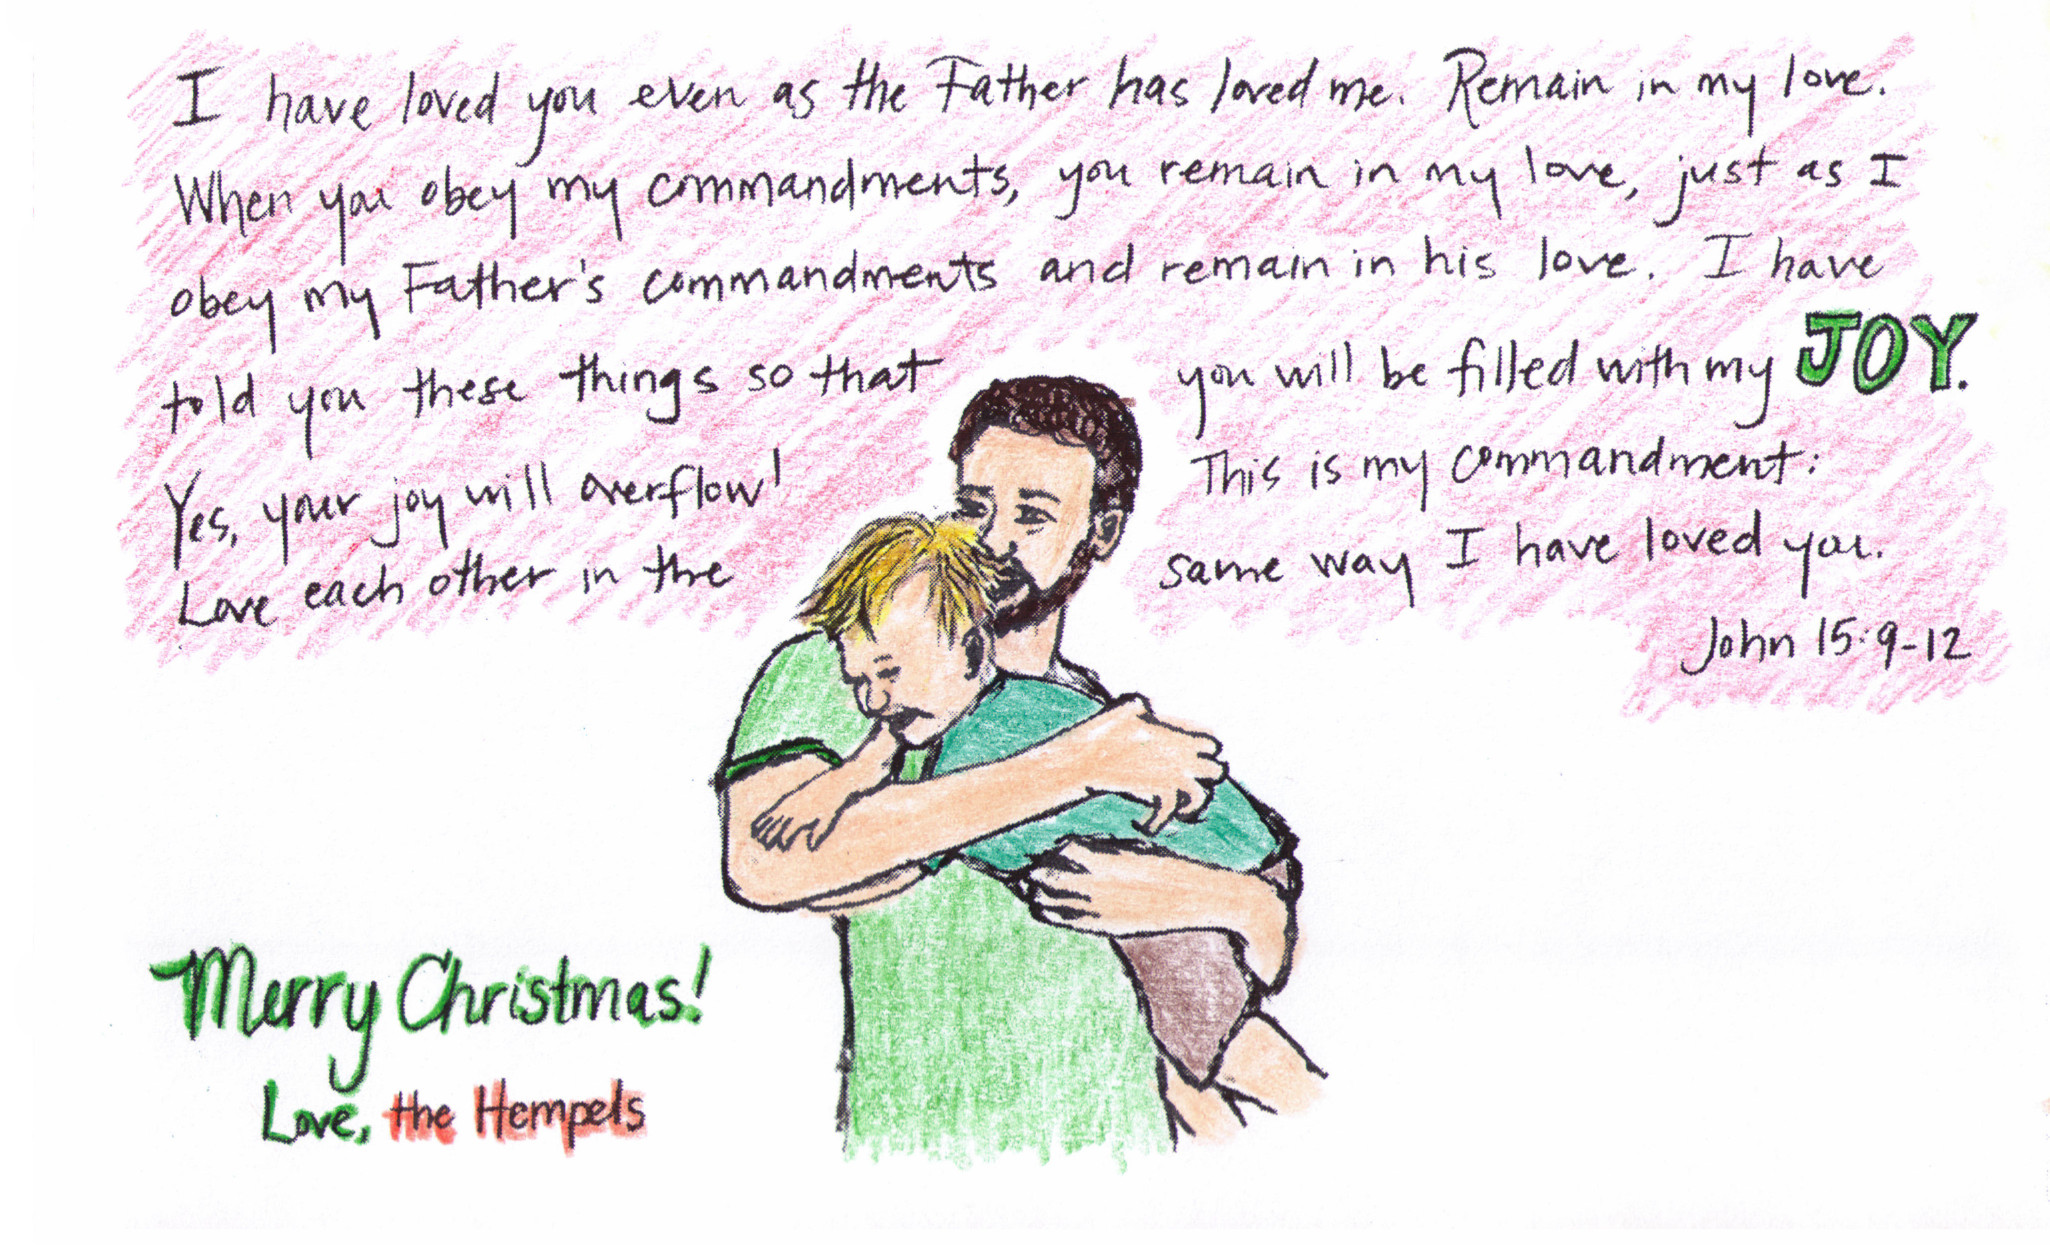 I have loved you even as the Father has loved me. Remain in my love.
When you obey my commandments, you remain in my love, just as I
obey my Father's commandments and remain in his love. I have
told you these things so that you will be filled with my JOY.
Yes, your joy will overflow! This is my commandment:
Love each other in the same way I have loved you.
John 15:9-12
Merry Christmas!
Love, the Hempels